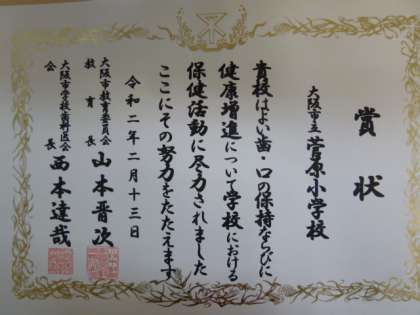 賞状
大阪市立 菅原小学校
貴校はよい歯・口の保持ならびに
健康増進について学校における
保健活動に尽力されました
ここにその努力をたたえます
令和二年二月十三日
大阪市教育委員会
教育長 山本晋次
大阪市学校歯科医会
会長 西本達哉